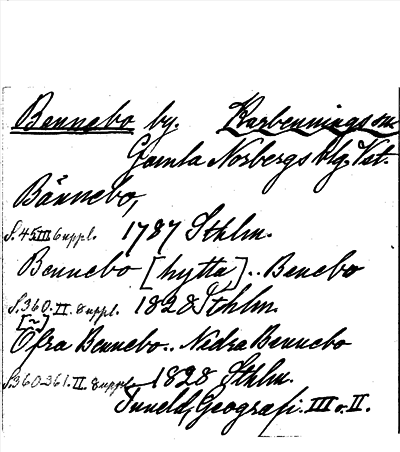 Bennebo by. Karbennings sn.
Gamla Norbergs blg. Vst.
Bännebo,
S. 45 III Suppl. 1787 Sthlm.
Bennebo [hytta].. Benebo
S. 360. II. Suppl. 1828 Sthlm.
[~]
Öfra Bennebo.. Nedra Bennebo
S. 360-361. II. Suppl. 1828 Sthlm.
Tuneld, Geografi. III o. II.